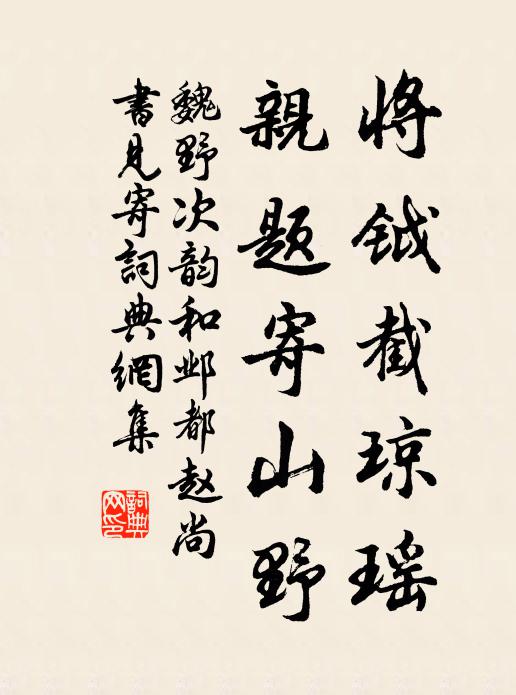 将钺截琼瑶
親题寄山野
魏野次韵和邺都赵尚
書見寄詞典網集
詞典网印